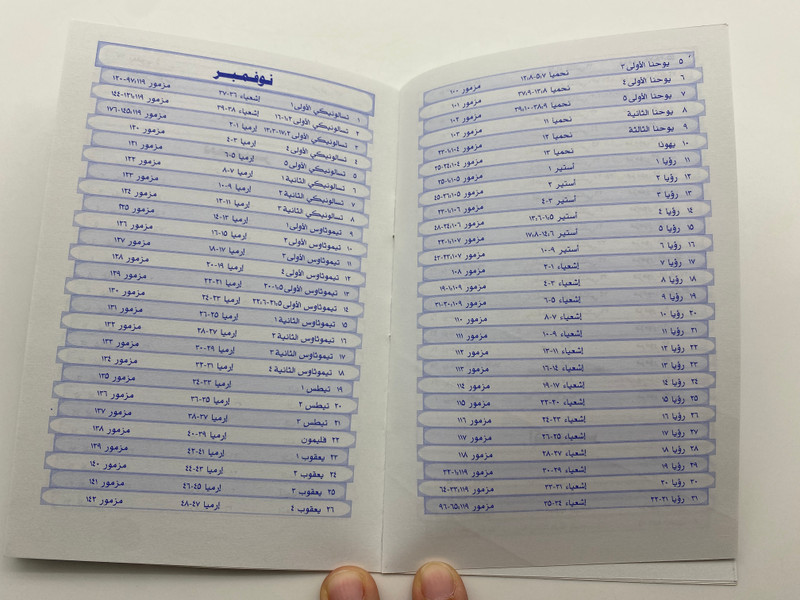 ٥ يوحنا الأولى ٣ نحميا ٧،٥-١٢،٨ مزمور ١٠٠
٦ يوحنا الأولى ٤ نحميا ١٣،٨-٣٧،٩ مزمور ١٠١
٧ يوحنا الأولى ٥ نحميا ٣٨،٩-٣٩،١٠ مزمور ١٠٢
٨ يوحنا الثانية نحميا ١١ مزمور ١٠٣
٩ يوحنا الثالثة نحميا ١٢ مزمور ١٠٤،١-٢٣
١٠ يهوذا نحميا ١٣ مزمور ١٠٤،٢٤-٣٥
١١ رؤيا ١ أستير ١ مزمور ١٠٥،١-٢٥
١٢ رؤيا ٢ أستير ٢ مزمور ١٠٥،٢٦-٤٥
١٣ رؤيا ٣ أستير ٣-٤ مزمور ١٠٦،١-٢٣
١٤ رؤيا ٤ أستير ٥،١-٦،١٣ مزمور ١٠٦،٢٤-٤٨
١٥ رؤيا ٥ أستير ٦،١٤-٨،١٧ مزمور ١٠٧،١-٢٢
١٦ رؤيا ٦ أستير ٩-١٠ مزمور ١٠٧،٢٣-٤٢
١٧ رؤيا ٧ إشعياء ١-٢ مزمور ١٠٨
١٨ رؤيا ٨ إشعياء ٣-٤ مزمور ١٠٩،١-١٩
١٩ رؤيا ٩ إشعياء ٥-٦ مزمور ١٠٩،٢٠-٣١
٢٠ رؤيا ١٠ إشعياء ٧-٨ مزمور ١١٠
٢١ رؤيا ١١ إشعياء ٩-١٠ مزمور ١١١
٢٢ رؤيا ١٢ إشعياء ١١-١٣ مزمور ١١٢
٢٣ رؤيا ١٣ إشعياء ١٤-١٦ مزمور ١١٣
٢٤ رؤيا ١٤ إشعياء ١٧-١٩ مزمور ١١٤
٢٥ رؤيا ١٥ إشعياء ٢٠-٢٢ مزمور ١١٥
٢٦ رؤيا ١٦ إشعياء ٢٣-٢٤ مزمور ١١٦
٢٧ رؤيا ١٧ إشعياء ٢٥-٢٦ مزمور ١١٧
٢٨ رؤيا ١٨ إشعياء ٢٧-٢٨ مزمور ١١٨
٢٩ رؤيا ١٩ إشعياء ٢٩-٣٠ مزمور ١١٩،١-٣٢
٣٠ رؤيا ٢٠ إشعياء ٣١-٣٣ مزمور ١١٩،٣٣-٦٤
٣١ رؤيا ٢١-٢٢ إشعياء ٣٤-٣٥ مزمور ١١٩،٦٥-٩٦
نوفمبر
١ تسالونيكي الأولى ١ إشعياء ٣٦-٣٧ مزمور ١١٩،٩٧-١٢٠
٢ تسالونيكي الأولى ٢،١-١٦ إشعياء ٣٨-٣٩ مزمور ١١٩،١٢١-١٤٤
٣ تسالونيكي الأولى ٢،١٧-٣،١٣ إرميا ١-٢ مزمور ١١٩،١٤٥-١٧٦
٤ تسالونيكي الأولى ٤ إرميا ٣-٤ مزمور ١٢٠
٥ تسالونيكي الأولى ٥ إرميا ٥-٦ مزمور ١٢١
٦ تسالونيكي الثانية ١ إرميا ٧-٨ مزمور ١٢٢
٧ تسالونيكي الثانية ٢ إرميا ٩-١٠ مزمور ١٢٣
٨ تسالونيكي الثانية ٣ إرميا ١١-١٢ مزمور ١٢٤
٩ تيموثاوس الأولى ١ إرميا ١٣-١٤ مزمور ١٢٥
١٠ تيموثاوس الأولى ٢ إرميا ١٥-١٦ مزمور ١٢٦
١١ تيموثاوس الأولى ٣ إرميا ١٧-١٨ مزمور ١٢٧
١٢ تيموثاوس الأولى ٤ إرميا ١٩-٢٠ مزمور ١٢٨
١٣ تيموثاوس الأولى ٥،١-٢٠ إرميا ٢١-٢٢ مزمور ١٢٩
١٤ تيموثاوس الأولى ٥،٢١-٦،٢٢ إرميا ٢٣-٢٤ مزمور ١٣٠
١٥ تيموثاوس الثانية ١ إرميا ٢٥-٢٦ مزمور ١٣١
١٦ تيموثاوس الثانية ٢ إرميا ٢٧-٢٨ مزمور ١٣٢
١٧ تيموثاوس الثانية ٣ إرميا ٢٩-٣٠ مزمور ١٣٣
١٨ تيموثاوس الثانية ٤ إرميا ٣١-٣٢ مزمور ١٣٤
١٩ تيطس ١ إرميا ٣٣-٣٤ مزمور ١٣٥
٢٠ تيطس ٢ إرميا ٣٥-٣٦ مزمور ١٣٦
٢١ تيطس ٣ إرميا ٣٧-٣٨ مزمور ١٣٧
٢٢ فليمون إرميا ٣٩-٤٠ مزمور ١٣٨
٢٣ يعقوب ١ إرميا ٤١-٤٢ مزمور ١٣٩
٢٤ يعقوب ٢ إرميا ٤٣-٤٤ مزمور ١٤٠
٢٥ يعقوب ٣ إرميا ٤٥-٤٦ مزمور ١٤١
٢٦ يعقوب ٤ إرميا ٤٧-٤٨ مزمور ١٤٢